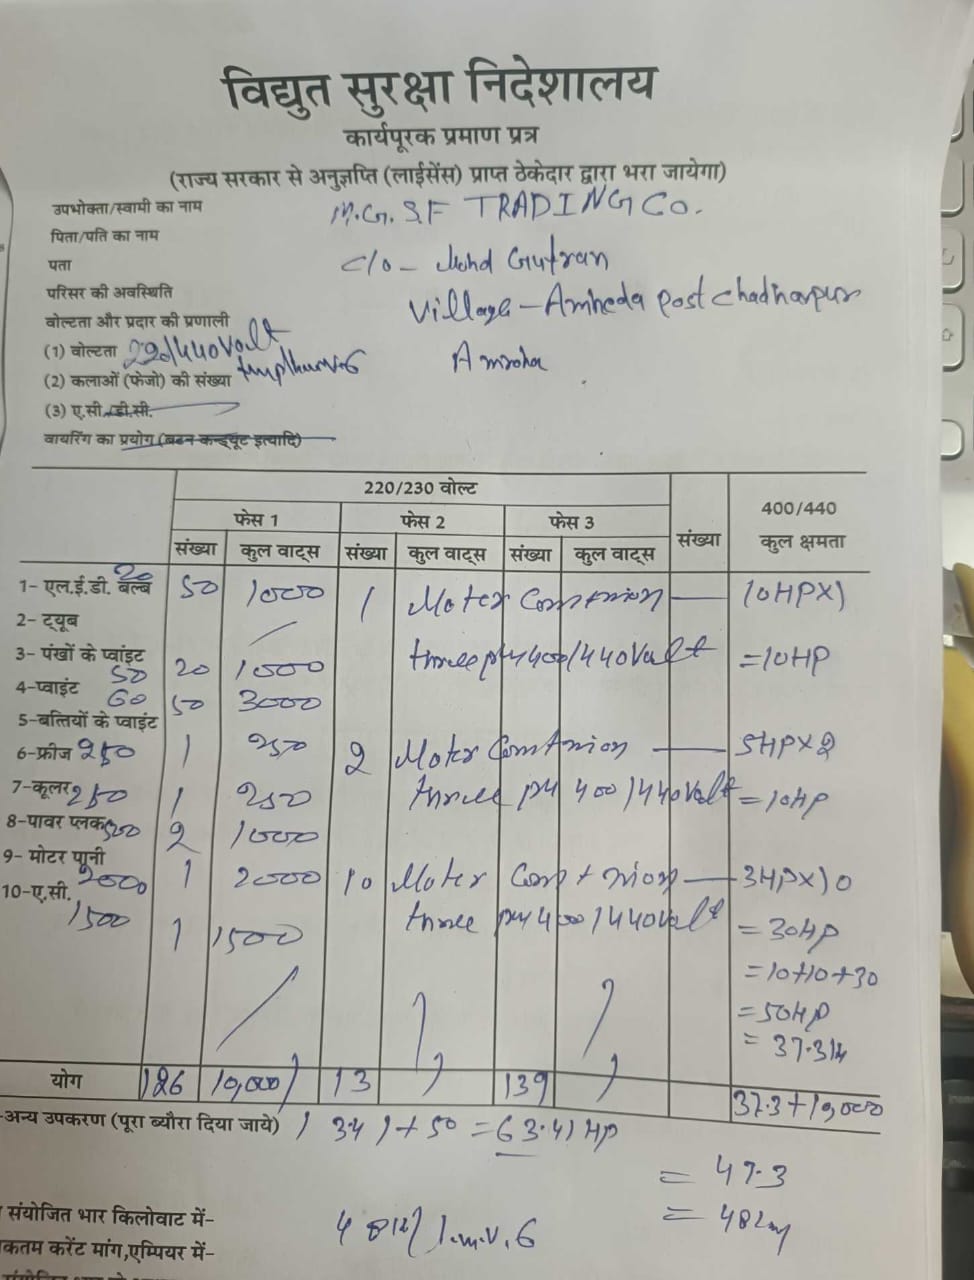 विद्युत सुरक्षा निदेशालय
कार्यपूरक प्रमाण प्रत्र
(राज्य सरकार से अनुज्ञप्ति (लाईसेंस) प्राप्त ठेकेदार द्वारा भरा जायेगा)
उपभोक्ता/स्वामी का नाम M.G.S.F TRADING Co.
पिता/पति का नाम
पता C/o - Mohd Gufran
परिसर की अवस्थिति Village - Amheda Post Chadharpur
वोल्टता और प्रदार की प्रणाली
(1) वोल्टता 220/440 Volt Amroha
(2) कलाओं (फेजो) की संख्या
(3) ए.सी./डी.सी.
वायरिंग का प्रयोग (बटन कन्ड्यूट इत्यादि)
220/230 वोल्ट 400/440
फेस 1 फेस 2 फेस 3 संख्या कुल क्षमता
संख्या कुल वाट्स संख्या कुल वाट्स संख्या कुल वाट्स
1- एल.ई.डी. बल्ब 20 50 1000 1 Moter 10HPX1
2- ट्यूब
3- पंखों के प्वांइट 50 20 1000 three 400/440 Valt =10HP
4-प्वाइंट 60 50 3000
5-बत्तियों के प्वाइंट
6-फ्रीज 250 1 250 2 Moter 5HPX2
7-कूलर 250 1 250 three 400/440 Valt =10HP
8-पावर प्लक 500 2 1000
9- मोटर पानी 2000 1 2000 10 Moter 3HPX10
10-ए.सी. 1500 1 1500 three 400/440 Valt =30HP
=10+10+30
=50HP
= 37.3
योग 126 10,000 13 139 37.3+10,000
-अन्य उपकरण (पूरा ब्यौरा दिया जाये) 13.41+50 =63.41 HP
= 47.3
संयोजित भार किलोवाट में- = 48
कतम करेंट मांग,एम्पियर में-